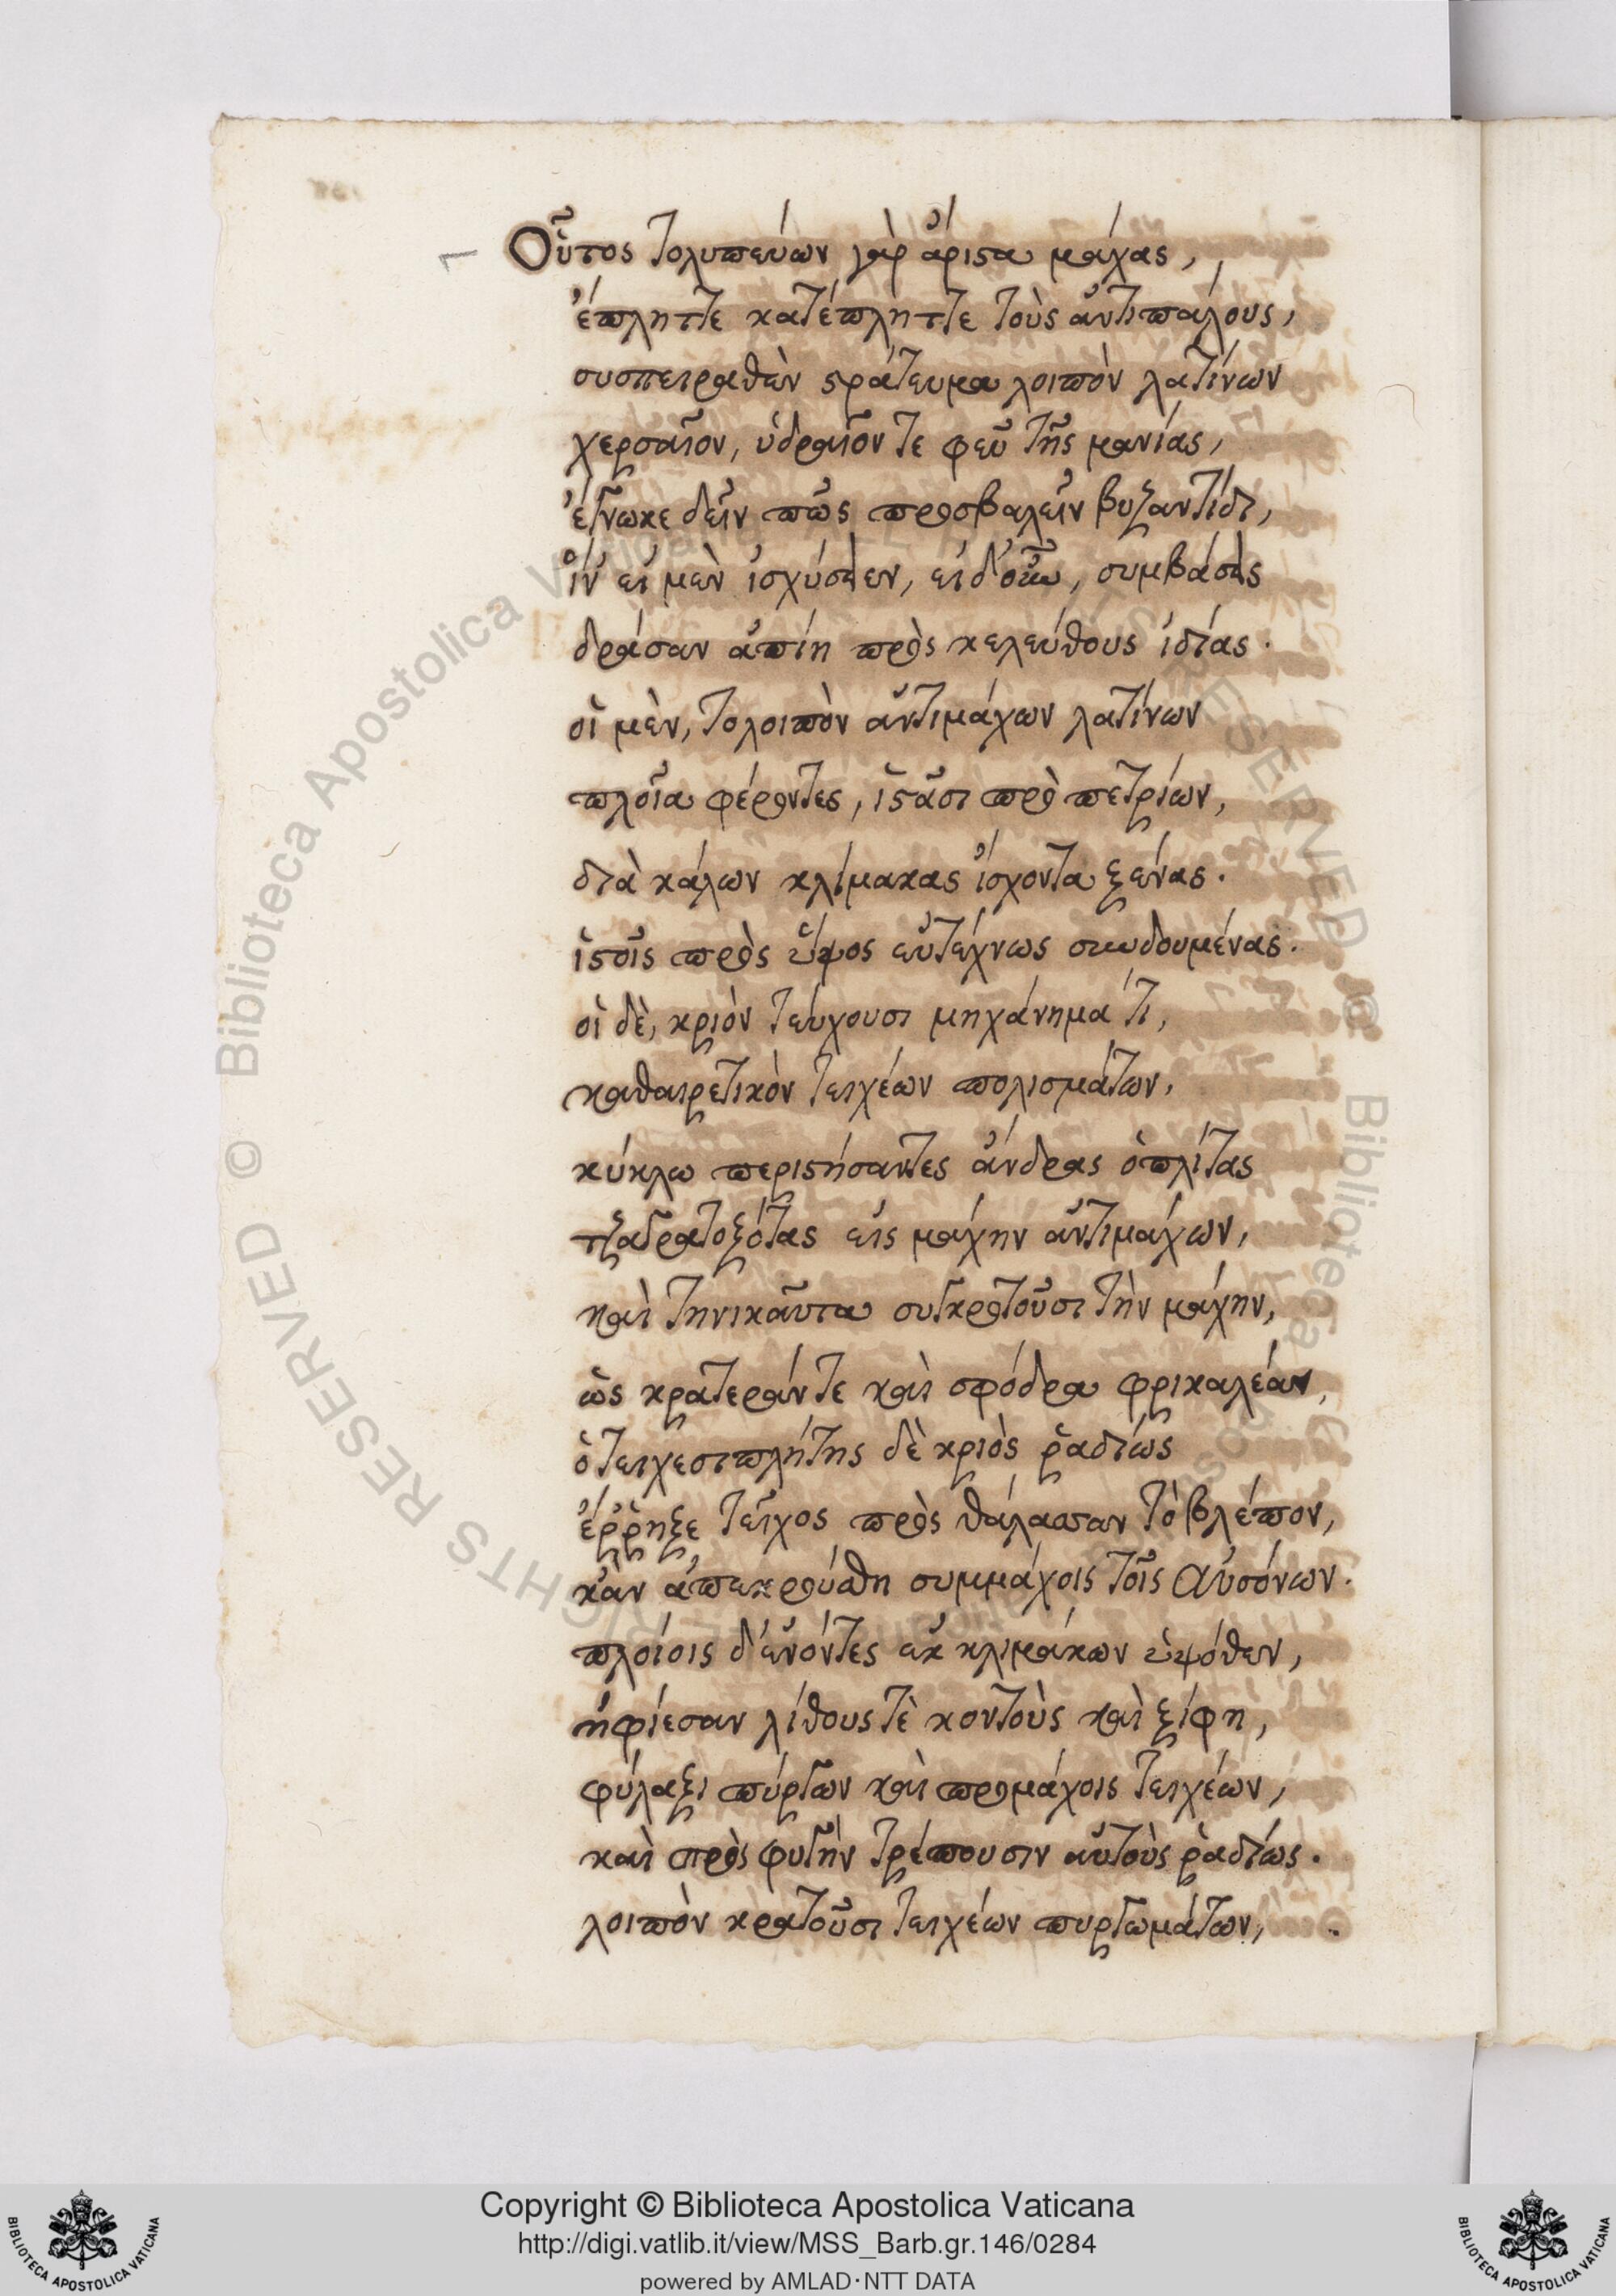 Οὗτος τολυπεύων γὰρ ἄριστα μάχας,
ἔπληττε κατέπληττε τοὺς ἀντιπάλους,
συσπειραθὲν στράτευμα λοιπὸν λατίνων
χερσαῖον, ὑδραῖον τε φεῦ τῆς μανίας,
ἔγνωκε δεῖν πῶς προσβαλεῖν βυζαντίδι,
ἵν' εἰ μὲν ἰσχύσειεν, εἰ δ' οὔκουν, συμβάσεις
δράσαν ἀπίη πρὸς κελεύθους ἰδίας.
οἱ μὲν, τολοιπὸν ἀντιμάχων λατίνων
πλοῖα φέροντες, ἱστᾶσι πρὸ πετρίων,
διὰ κάλων κλίμακας ἴσχοντα ξένας.
ἱστοῖς πρὸς ὕψος εὐτέχνως συνδουμένας.
οἱ δὲ, κριὸν τεύχουσι μηχάνημά τι,
καθαιρετικὸν τειχέων πολισμάτων,
κύκλω περιστήσαντες ἄνδρας ὁπλίτας
τζαγρατοξότας εἰς μάχην ἀντιμάχων,
καὶ τηνικαῦτα συγκροτοῦσι τὴν μάχην,
ὡς κρατεράν τε καὶ σφόδρα φρικαλέαν,
ὁ τειχεσιπλήτης δὲ κριὸς ῥαδίως
ἔῤῥηξε τεῖχος πρὸς θάλασσαν τὸ βλέπον,
κἂν ἀπεκρούσθη συμμάχοις τοῖς Αὐσόνων.
πλοίοις δ' ἐνόντες ἐκ κλιμάκων ὑψόθεν,
ἠφίεσαν λίθους τὲ κοντοὺς καὶ ξίφη,
φύλαξι πύργων καὶ προμάχοις τειχέων,
καὶ πρὸς φυγὴν τρέπουσιν αὐτοὺς ῥαδίως.
λοιπὸν κρατοῦσι τειχέων πυργωμάτων,
Copyright © Biblioteca Apostolica Vaticana
http://digi.vatlib.it/view/MSS_Barb.gr.146/0284
powered by AMLAD·NTT DATA